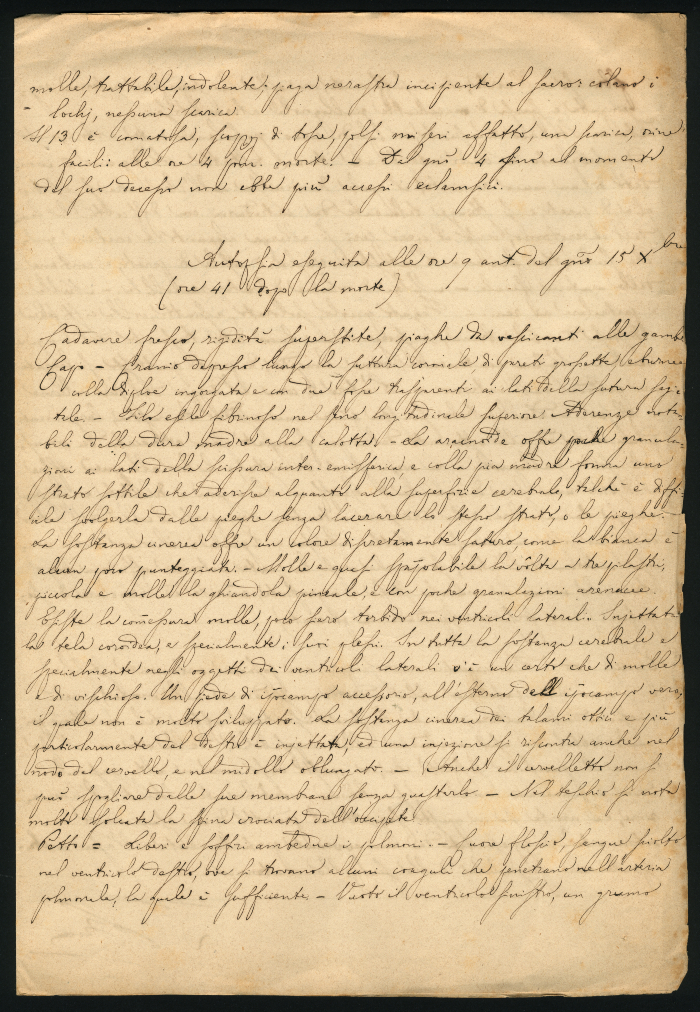 molle, trattabile, indolente; piaga nerastra incipiente al sacro: colano i
lochj, nessuna scarica
Il 13 è comatosa, scoppj di tosse, polsi miseri affatto, una scarica, orine
facili: alle ore 4 pom. morte. – Dal gno 4 sino al momento
del suo decesso non ebbe più accessi eclamsici.
Autopsia eseguita alle ore 9 ant. del gno 15 Xbre
(ore 41 dopo la morte)
Cadavere fresco, rigidità superstite, piaghe da vessicanti alle gambe
Capo – Cranio depresso lungo la suttura coronale di pareti grossette, eburnee
colla diploe ingorgata e con due fosse trasparenti ai lati della sutura sagit-
tale. – Filo esile fibrinoso nel seno longitudinale superiore. Aderenze nota-
bili della dura madre alla calotta. – La aracnoide offre poche granula-
zioni ai lati della scissura inter-emisferica, e colla pia madre forma uno
strato sottile che aderisce alquanto alla superficie cerebrale, talchè è diffi-
cile svolgerla dalle pieghe senza lacerare lo stesso strato, o le pieghe. –
La sostanza cinerea offre un colore discretamente saturo, come la bianca è
alcun poco punteggiata. – Molle e quasi spappolabile la vôlta a tre pilastri,
piccola e molle la ghiandola pineale, e con poche granulazioni arenacee.
Esiste la comessura molle, poco siero torbido nei ventricoli laterali. Injettata
la tela coroidea, e specialmente i suoi plessi. In tutta la sostanza cerebrale e
specialmente negli oggetti dei ventricoli laterali v'è un certo che di molle
e di vischioso. Un piede di ippocampo accessorio, all'esterno dell'ippocampo vero,
il quale non è molto sviluppato. La sostanza cinerea dei talami ottici e più
particolarmente del destro è injettata, ed una injezione si riscontra anche nel
nodo del cervello, e nel midollo oblungato. – Anche il cervelletto non si
può spogliare dalle sue membrane senza guastarlo – Nel teschio si nota
molto solcata la spina crociata dell'occipite
Petto = Liberi e soffici ambedue i polmoni. – Cuore floscio, sangue sciolto
nel ventricolo destro, ove si trovano alcuni coaguli che penetrano nell'arteria
polmonale, la quale è sufficiente. – Vuoto il ventricolo sinistro, un grumo